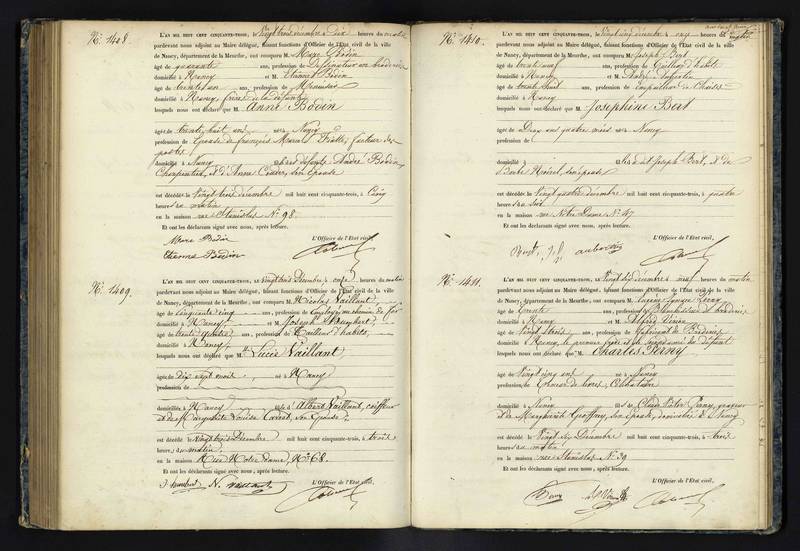 N°. 1408.
L'AN MIL HUIT CENT CINQUANTE-TROIS, le vingt trois décembre à dix heures du matin
pardevant nous adjoint au Maire délégué, faisant fonctions d'Officier de l'Etat civil de la ville
de Nancy, département de la Meurthe, ont comparu M. Marc Bodin
âgé de quarante ans, profession de Dessinateur en broderies
domicilié à Nancy et M. Etienne Bodin
âgé de trente un ans, profession de Menuisier
domicilié à Nancy, frères de la défunte
lesquels nous ont déclaré que M. Anne Bodin
âgée de trente huit ans née à Nancy
profession de Epouse de françois Marcel facteur des
postes
domiciliée à Nancy fille des défunts André Bodin
Charpentier, & d'Anne son épouse
est décédée le Vingt trois décembre mil huit cent cinquante-trois, à Cinq
heures du matin
en la maison rue Stanislas N° 98
Et ont les déclarants signé avec nous, après lecture.
L'Officier de l'Etat civil,
Marc Bodin
Etienne Bodin
N°. 1409.
L'AN MIL HUIT CENT CINQUANTE-TROIS, le vingt trois Décembre, à onze heures du matin
pardevant nous adjoint au Maire délégué, faisant fonctions d'Officier de l'Etat civil de la ville
de Nancy, département de la Meurthe, ont comparu M. Nicolas Vaillant,
âgé de cinquante cinq ans, profession de Employé au chemin de fer
domicilié à Nancy, et M. Joseph Humbert,
âgé de trente quatre ans, profession de Tailleur d'habits,
domicilié à Nancy,
lesquels nous ont déclaré que M. Lucie Vaillant
âgée de dix sept mois née à Nancy
profession de
domiciliée à Nancy fille d'Albert Vaillant, coiffeur
et de Marguerite Louise son épouse
est décédée le vingt trois Décembre mil huit cent cinquante-trois, à trois
heures du matin,
en la maison Rue Notre Dame, N° 68.
Et ont les déclarants signé avec nous, après lecture.
L'Officier de l'Etat civil,
J humbert N. Vaillant
N°. 1410.
L'AN MIL HUIT CENT CINQUANTE-TROIS, le vingt cinq décembre à onze heures du matin
pardevant nous adjoint au Maire délégué, faisant fonctions d'Officier de l'Etat civil de la ville
de Nancy, département de la Meurthe, ont comparu M. Joseph Bert
âgé de trente neuf ans, profession de Tailleur d'habits
domicilié à Nancy et M. André Aubertin
âgé de trente huit ans, profession de Empailleur de Chaises
domicilié à Nancy
lesquels nous ont déclaré que M. Joséphine Bert
âgée de Deux ans quatre mois née à Nancy
profession de
domiciliée à fille dudit Joseph Bert, & de
Barbe son épouse
est décédée le Vingt quatre décembre mil huit cent cinquante-trois, à quatre
heures du soir
en la maison rue Notre Dame N° 47
Et ont les déclarants signé avec nous, après lecture.
L'Officier de l'Etat civil,
Bert J. aubertin
N°. 1411.
L'AN MIL HUIT CENT CINQUANTE-TROIS, le Vingt six décembre à neuf heures du matin
pardevant nous adjoint au Maire délégué, faisant fonctions d'Officier de l'Etat civil de la ville
de Nancy, département de la Meurthe, ont comparu M.
âgé de trente ans, profession de de broderies
domicilié à Nancy et M.
âgé de vingt trois ans, profession de fabricant de Broderies
domicilié à Nancy, le premier frère et le second ami du défunt
lesquels nous ont déclaré que M. Charles Perny
âgé de vingt cinq ans né à Nancy
profession de Teneur de livres, Célibataire
domicilié à Nancy fils de Claude Victor Perny, graveur
et de Marguerite Geoffroy, son épouse, domiciliés à Nancy
est décédé le Vingt six Décembre mil huit cent cinquante-trois, à trois
heures du matin
en la maison rue Stanislas N° 39
Et ont les déclarants signé avec nous, après lecture.
L'Officier de l'Etat civil,
Perny